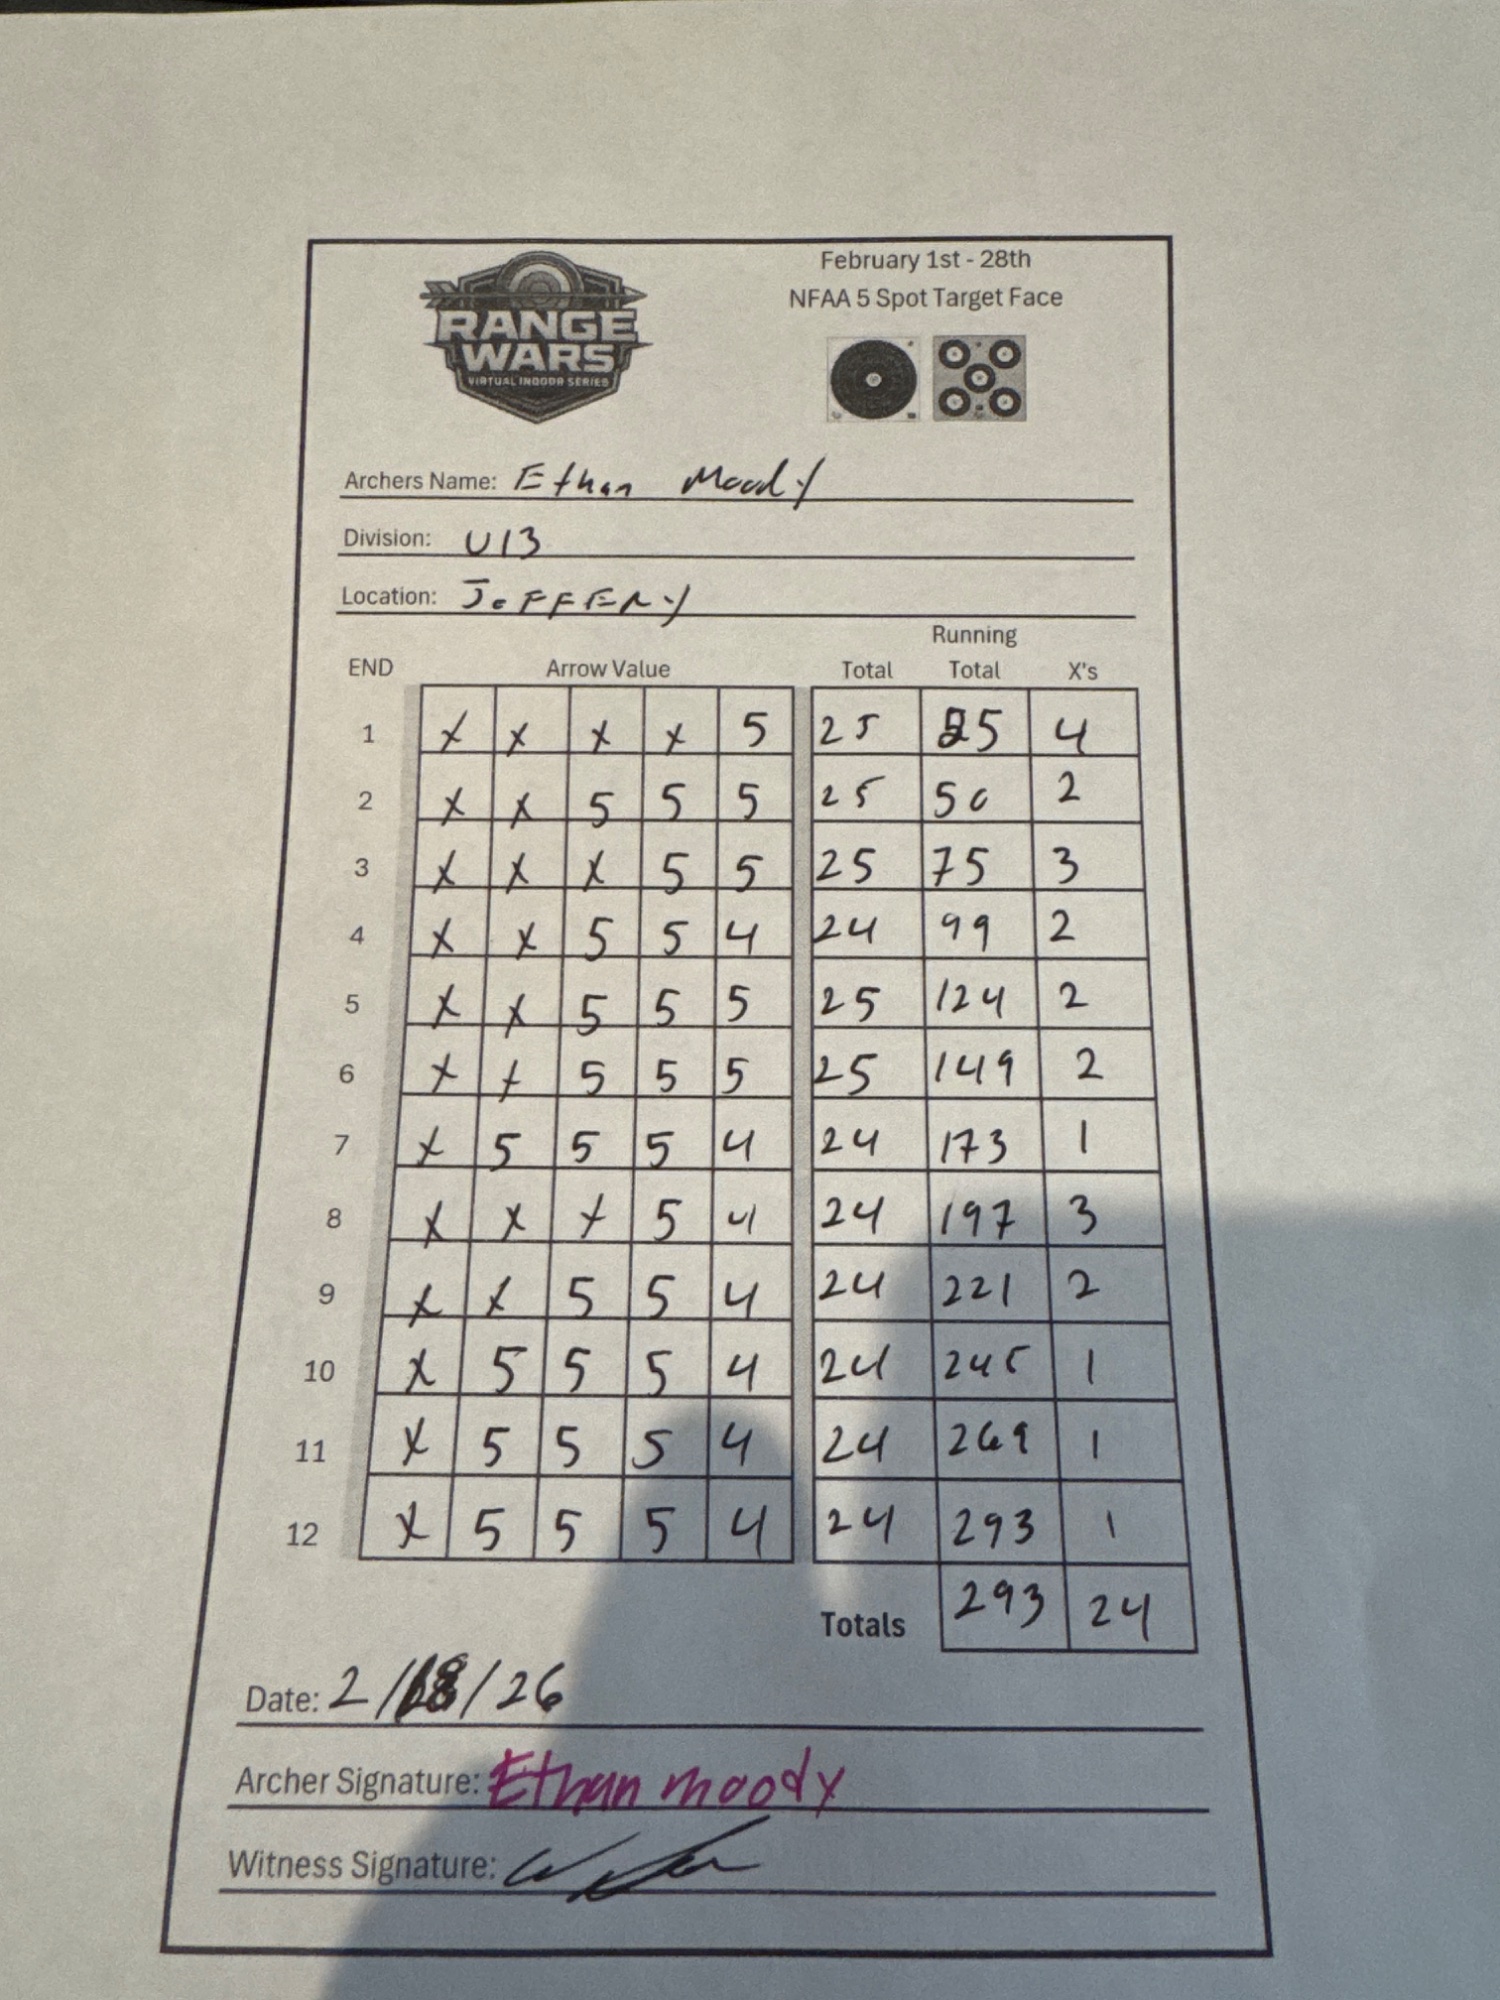 RANGE
WARS
VIRTUAL INDOOR SERIES
February 1st - 28th
NFAA 5 Spot Target Face
Archers Name: Ethan Moody
Division: U13
Location: JeFFERY
Running
END Arrow Value Total Total X's
1 X X X X 5 25 25 4
2 X X 5 5 5 25 50 2
3 X X X 5 5 25 75 3
4 X X 5 5 4 24 99 2
5 X X 5 5 5 25 124 2
6 X X 5 5 5 25 149 2
7 X 5 5 5 4 24 173 1
8 X X X 5 4 24 197 3
9 X X 5 5 4 24 221 2
10 X 5 5 5 4 24 245 1
11 X 5 5 5 4 24 269 1
12 X 5 5 5 4 24 293 1
Totals 293 24
Date: 2/18/26
Archer Signature: Ethan moody
Witness Signature: